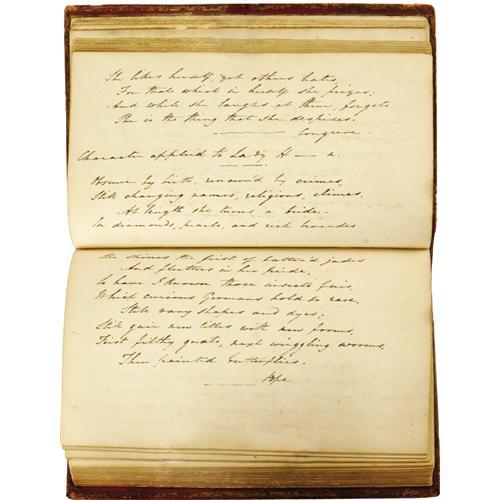 She likes herself, yet others hates,
For that which in herself she prizes;
And while she laughs at them, forgets
She is the thing that she despises.
Congreve.
Character applied to Lady H — a.
by birth, renown'd by crimes,
Still changing names, religions, climes,
At length she turns a bride—
In diamonds, pearls, and rich brocades
She shines the first of batter'd jades
And flutters in her pride.
So have I known those insects fair,
Which curious Germans hold so rare,
Still vary shapes and dyes;
Still gain new titles with new forms,
First filthy grubs, next wriggling worms,
Then painted butterflies.
Pope